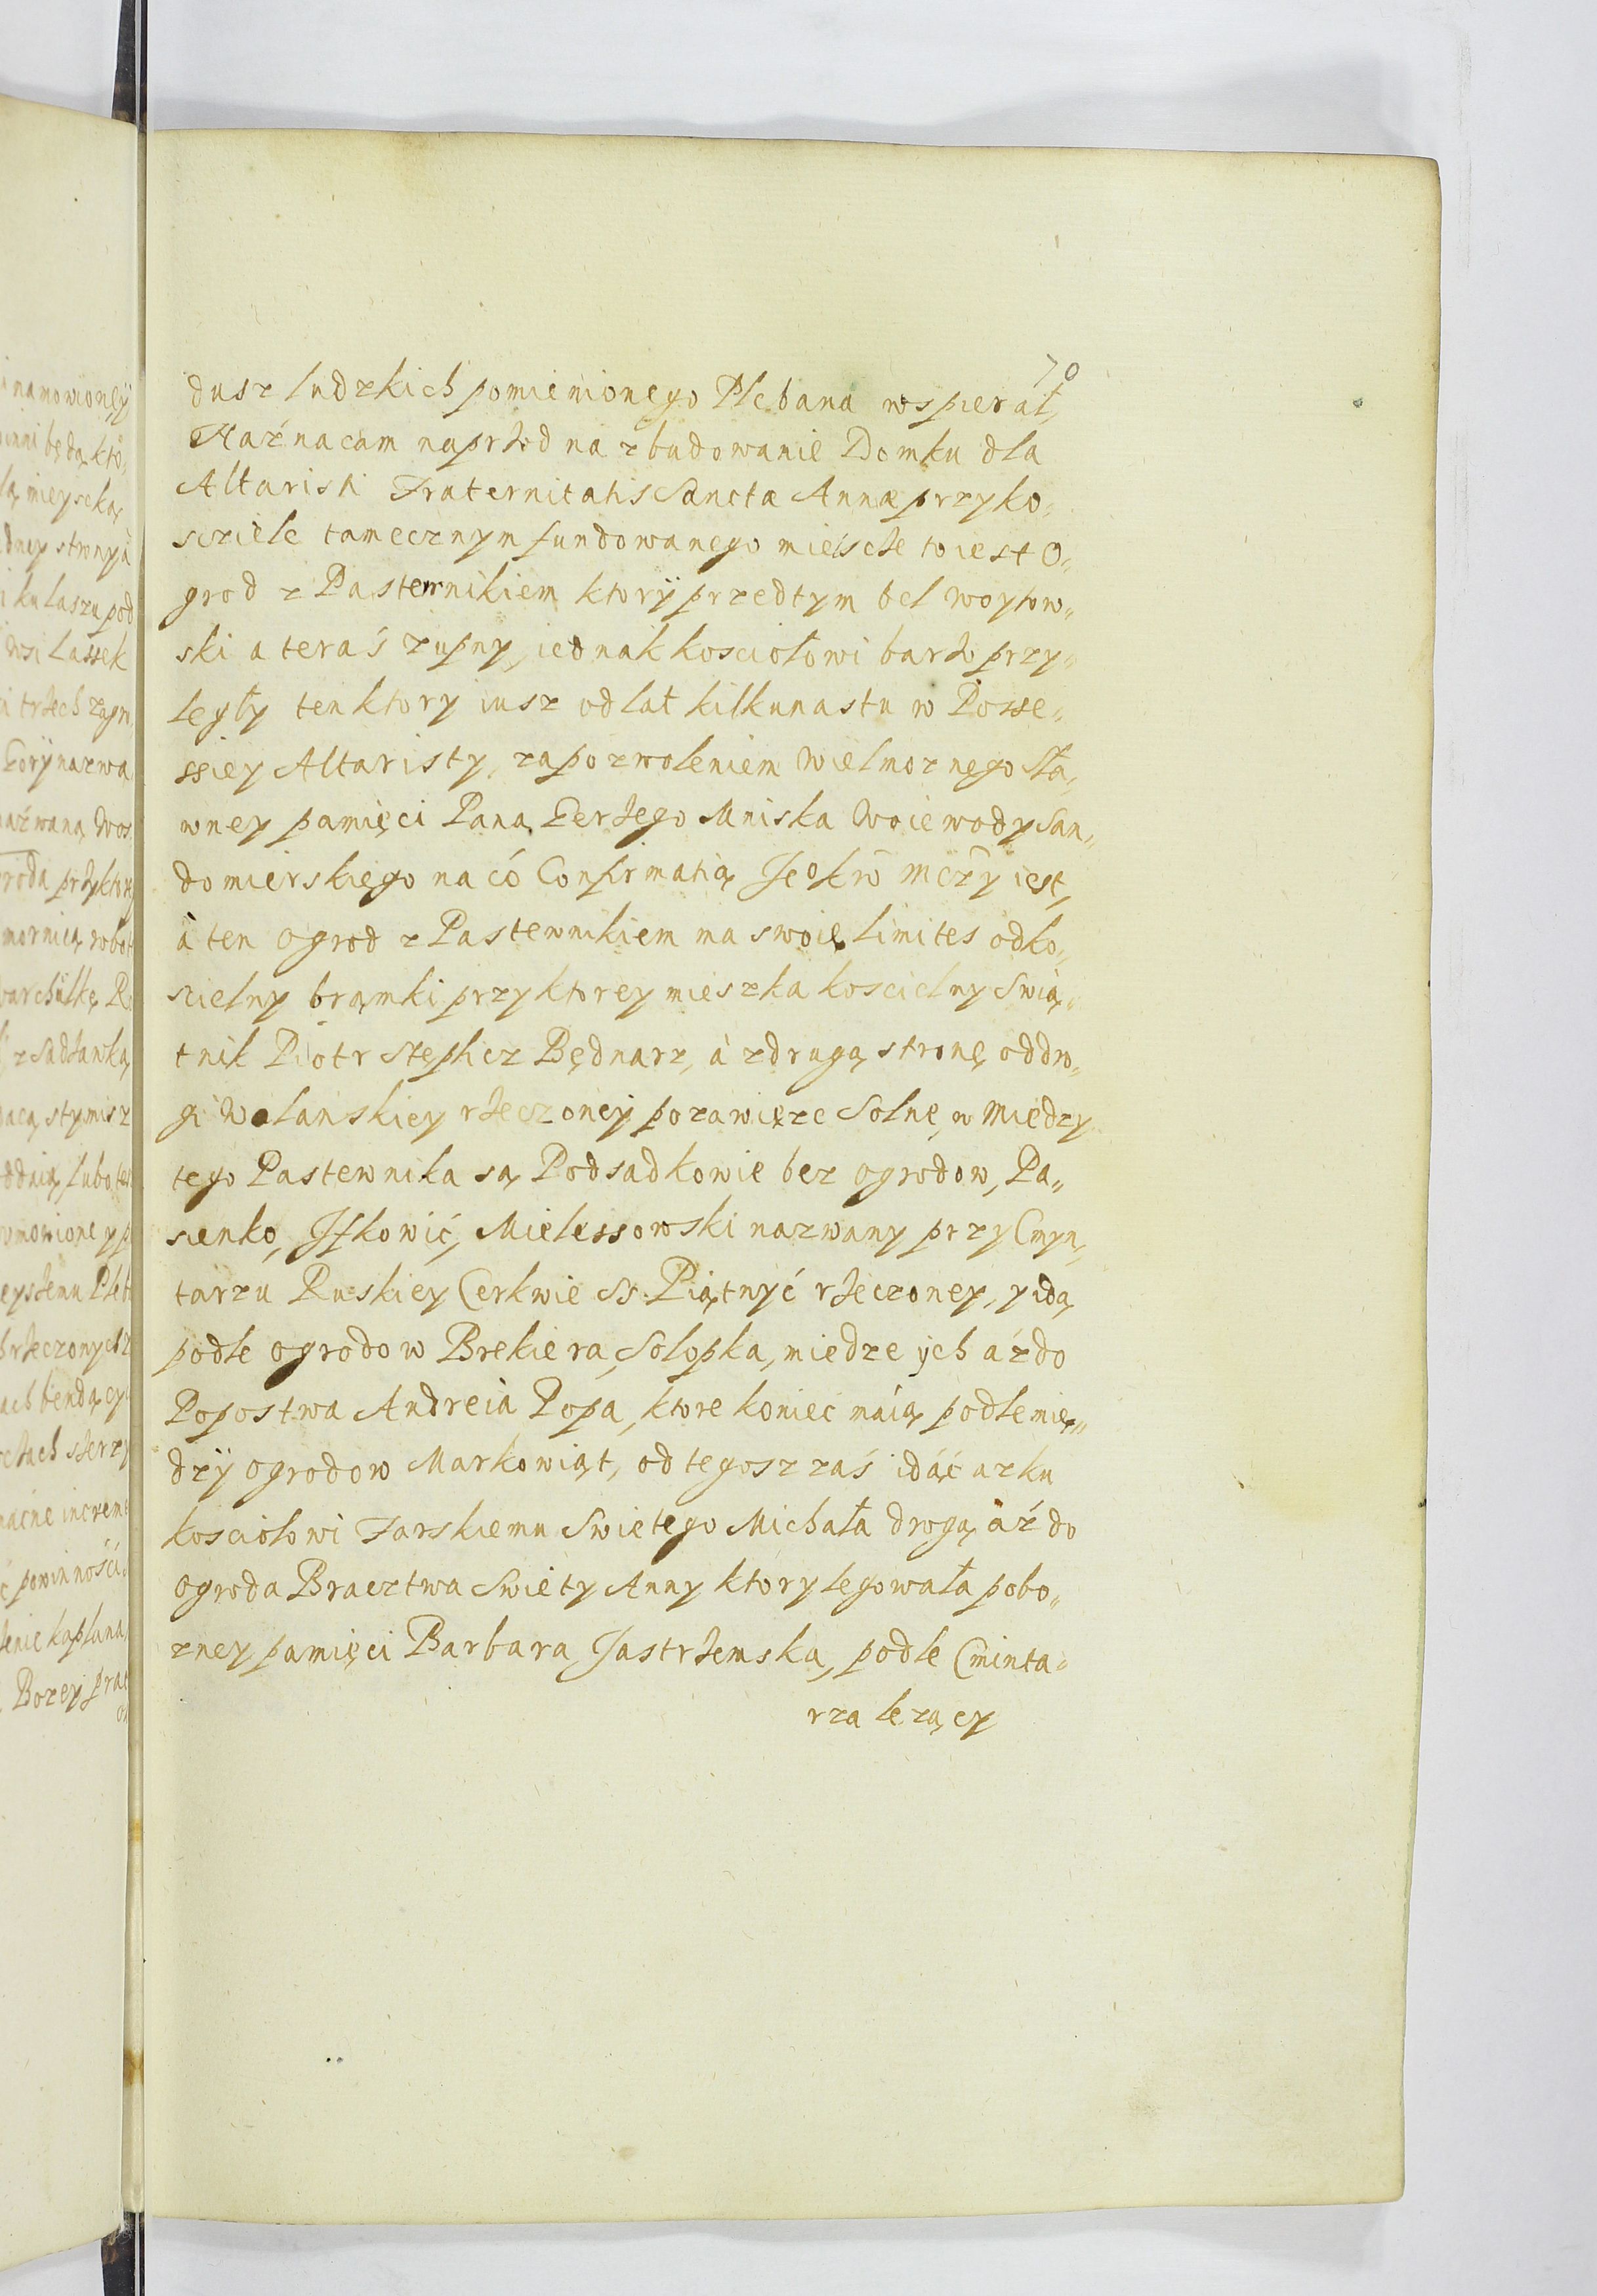 70
dusz ludzkich pomienionego Plebana wspierał,
Naznacam naprzod na zbudowanie Domku dla
Altaristi Fraternitatis Sanctæ Annæ przy ko„
scziele tamecznym fundowanego mieisce to iest O„
grod z Pastewnikiem ktory przedtym bel woytow„
ski a teraś zupny, iednak kosciołowi barzo przy„
legły ten ktory iusz od lat kilkunastu w Posse„
ssiey Altaristy, za pozwoleniem wielmoznego sła„
wney pamięci Pana Jerzego Mniska Woiewody San„
domierskiego na có Confirmatią Je° Kr̃ Mc̃zy iest,
à ten ogrod z Pastewnikiem ma swoie limites od ko„
scielny brąmki przy ktorey mieszka koscielny Swią„
tnik Piotr Stephcz Będnarz, à z drugą stronę od dro„
gi Walańskiey rzeczoney po zawięze Solne, w Miedzy
tego Pastewnika są Podsadkowie bez ogrodow, Pa„
sienko, Ifkowić, Mielessowski nazwany przy Cmyn„
tarzu Ruskiey Cerkwie SS. Piątnyć rzeczoney, y idą
podle ogrodow Brekiera, Solopka, miedze ych aż do
Popostwa Andreia Popa, ktore koniec maią podle mię„
dzy ogrodow Markowiąt, od tegosz zaś idąć az ku
kosciołowi Farskiemu Swietego Michała drogą àż do
ogroda Bracztwa Swięty Anny ktory legowała pobo„
zney pamięci Barbara Jastrzemska, podle Cminta„
rza lezący